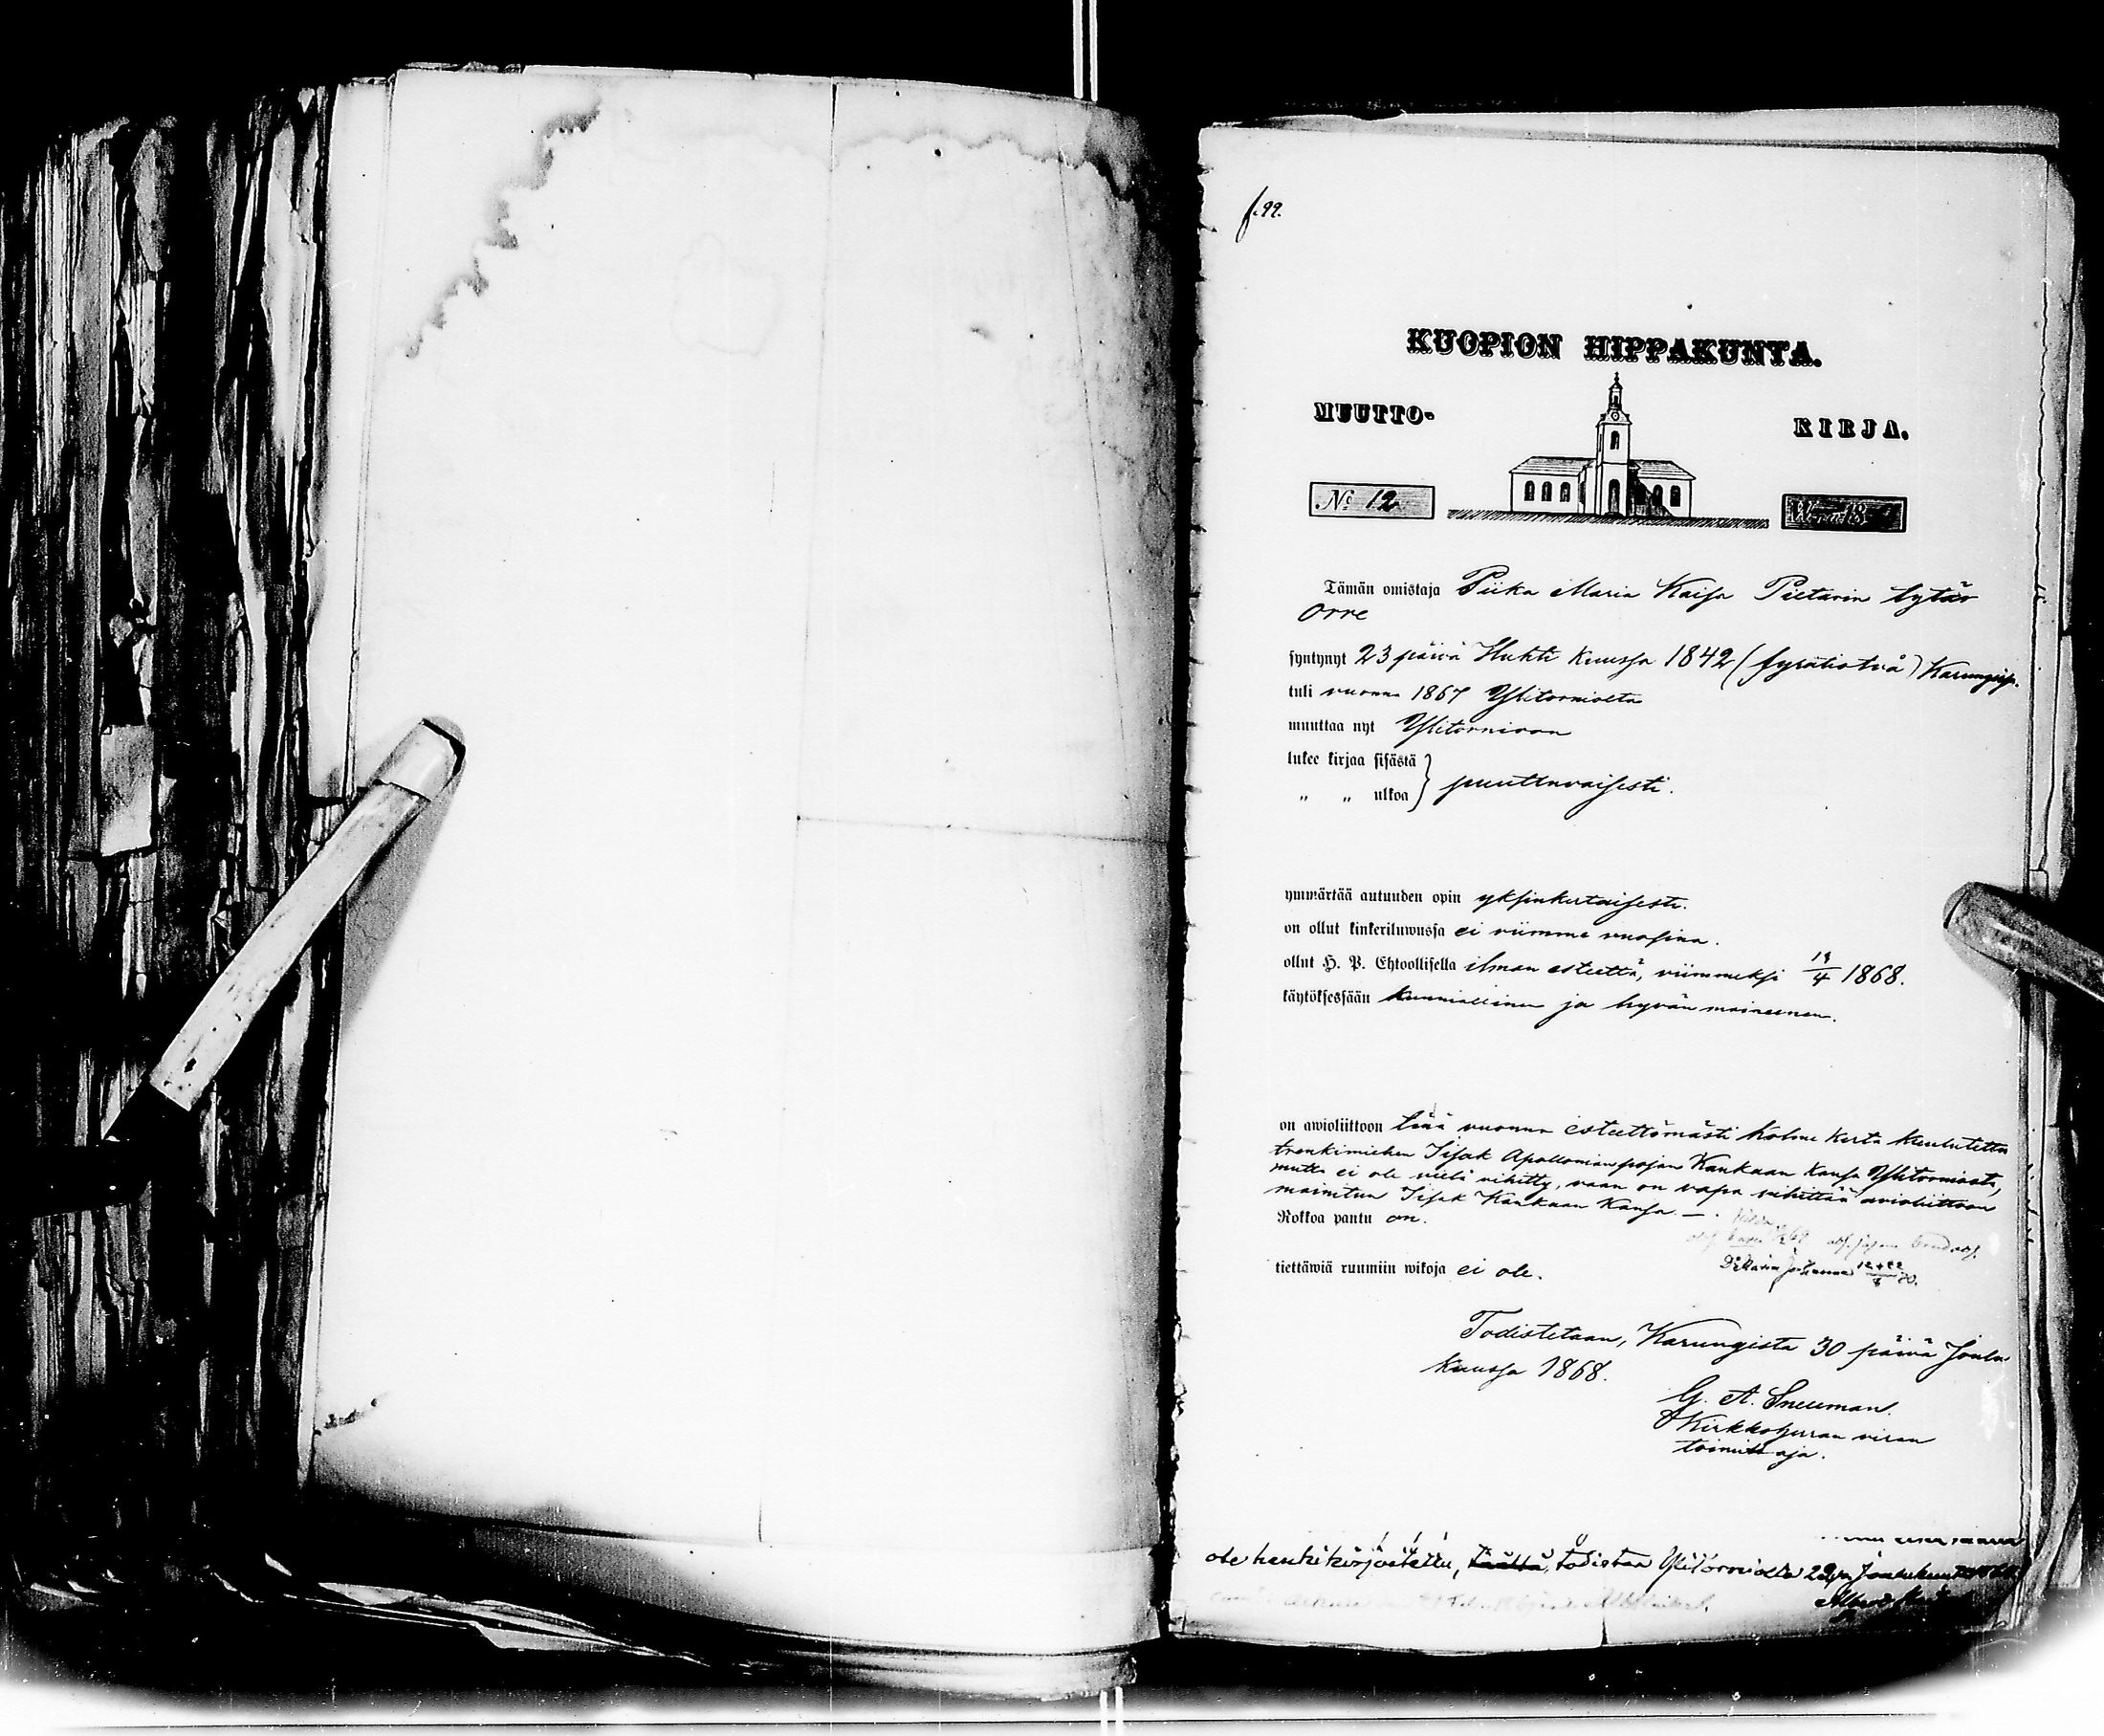 f. 99.
KUOPION HIPPAKUNTA.
MUUTTO- KIRJA.
No 12 W. 18
Tämän omistaja Piika Maria Kaisa Pietarin tytär
Orre
syntynyt 23 päivä Huhti kuussa 1842 (syrätiotvä) Karungisa.
tuli vuonna 1867 Ylitorniolta
muuttaa nyt Ylitornioon
lukee kirjaa sisästä
„ „ ulkoa } puuttuvaisesti.
ymmärtää autuuden opin yksinkertaisesti.
on ollut kinkeriluwussa ei viimme vuosina.
ollut H. P. Ehtoollisella ilman estettä, viimmeksi 19/4 1868.
käytöksessään kunniallinen ja hyvän maineenen.
on awioliittoon tänä vuonna esteettömästi kolme kerta kuulutettu
trenkimiehen Iisak Apollonian pojan Kankaan kansa Ylitorniosta,
mutta ei ole vielä vihitty, vaan on vapa vihittää avioliittoon
mainitun Iisak Kankaan Kansa. —.
Rokkoa pantu on.
tiettäwiä ruumiin wikoja ei ole.
D: Maria Johanna
Todistetaan, Karungista 30 päivä Joulu
kuussa 1868.
G. A. Sneuman.
Kirkkoherran viran
toimittaja.
ole henkikirjoitettu, täältä, todistaa Ylitorniolla 29 p. Joulukuuta